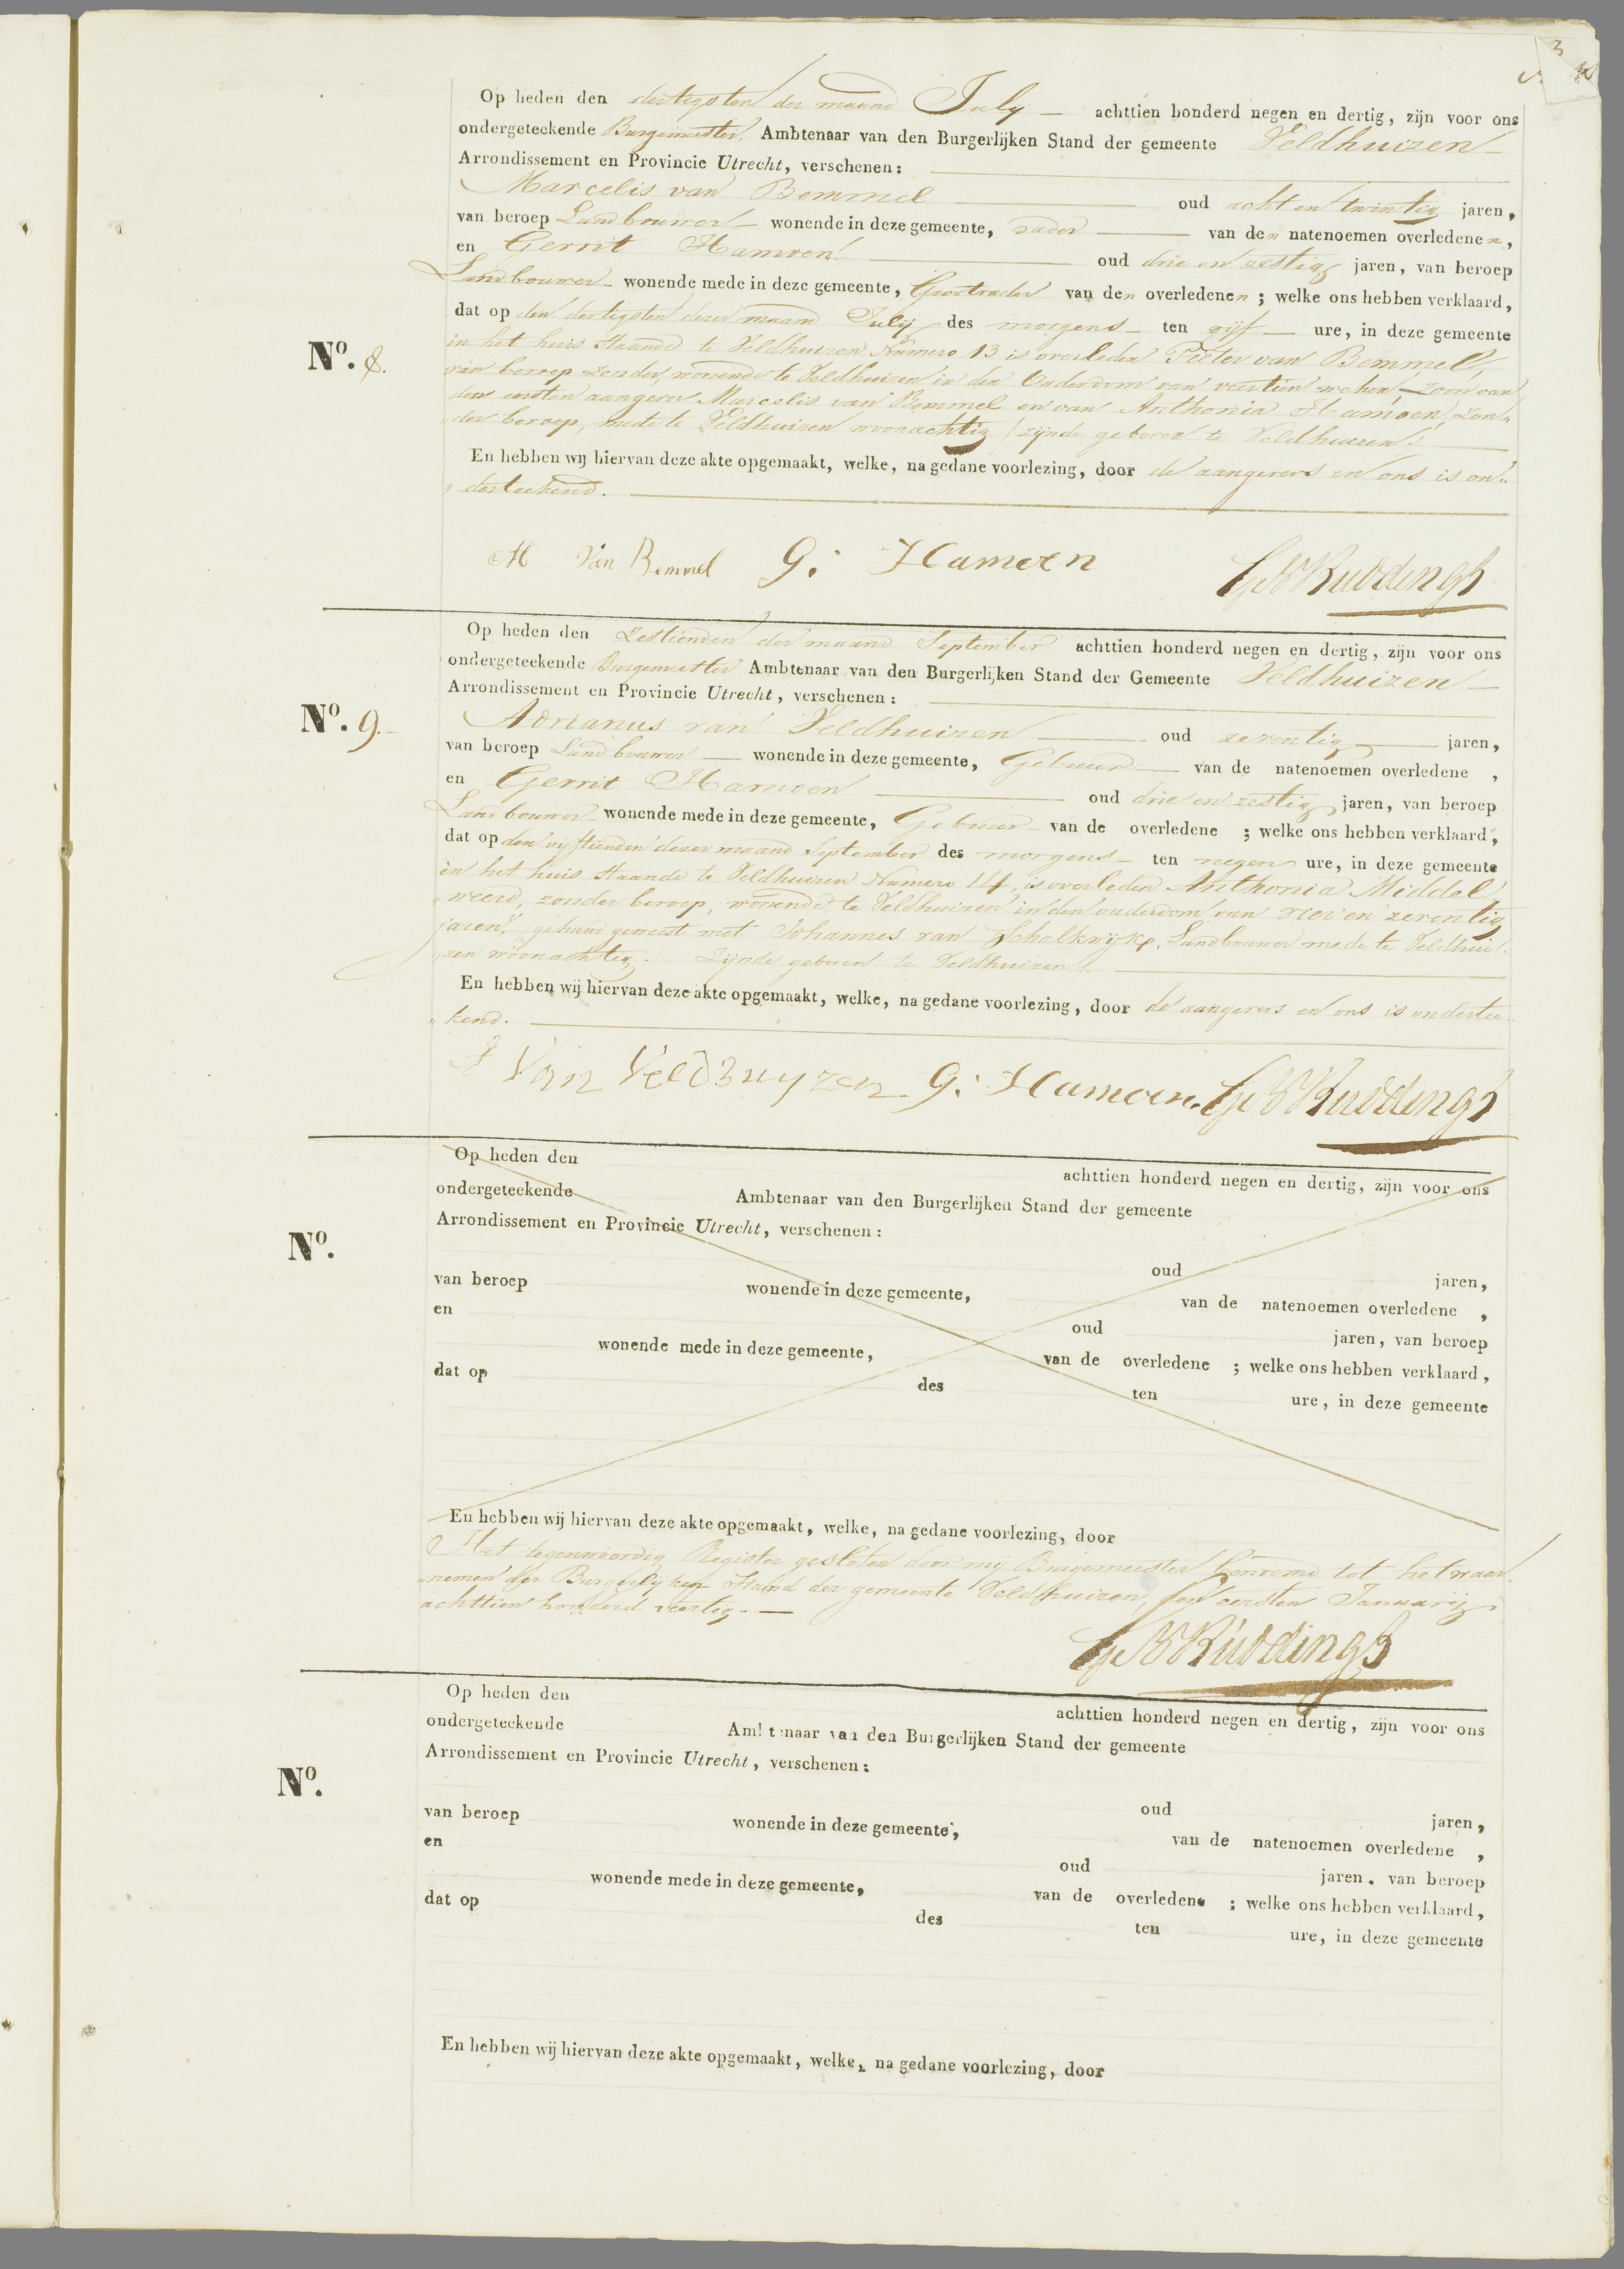 3
Op heden den dertigsten der maand July — achttien honderd negen en dertig, zijn voor ons
ondergeteekende Burgemeester, Ambtenaar van den Burgerlijken Stand der gemeente Veldhuizen
Arrondissement en Provincie Utrecht, verschenen:
Marcelis van Bemmel oud acht en twintig jaren,
van beroep Landbouwer wonende in deze gemeente, vader van den natenoemen overledenen,
en Gerrit Hamoen oud drie en zestig jaren, van beroep
Landbouwer wonende mede in deze gemeente, Grootvader van den overledenen; welke ons hebben verklaard,
dat op den dertigsten dezer maand July des morgens ten vijf ure, in deze gemeente
No. 8.
in het huis staande te Veldhuizen Numero 13 is overleden Pieter van Bemmel,
van beroep zonder, wonende te Veldhuizen in den Ouderdom van veertien weken zoon van
den eersten aangever Marcelis van Bemmel en van Anthonia Hamoen, zon„
„der beroep, mede te Veldhuizen woonachtig / zijnde geboren te Veldhuizen./
En hebben wij hiervan deze akte opgemaakt, welke, na gedane voorlezing, door de aangevers en ons is on„
„derteekend.
M Van Bemmel G: Hamoen
Op heden den zestienden der maand September achttien honderd negen en dertig, zijn voor ons
ondergeteekende Burgemeester Ambtenaar van den Burgerlijken Stand der Gemeente Veldhuizen
Arrondissement en Provincie Utrecht, verschenen:
No. 9.
Adrianus van Veldhuizen oud zeventig jaren,
van beroep Landbouwer wonende in deze gemeente, Gebuur van de natenoemen overledene,
en Gerrit Hamoen oud drie en zestig jaren, van beroep
Landbouwer wonende mede in deze gemeente, Gebuur van de overledene; welke ons hebben verklaard,
dat op den vijftienden dezer maand September des morgens ten negen ure, in deze gemeente
in het huis staande te Veldhuizen Numero 14, is overleden Anthonia Middel„
„weerd, zonder beroep, wonende te Veldhuizen in den ouderdom van vier en zeventig
jaren, gehuwd geweest met Johannes van Schalkwijk, Landbouwer mede te Veldhui„
„zen woonachtig. Zijnde geboren te Veldhuizen.
En hebben wij hiervan deze akte opgemaakt, welke, na gedane voorlezing, door de aangevers en ons is ondertee„
„kend.
Van Veldhuyzen G: Hamoen.
Op heden den achttien honderd negen en dertig, zijn voor ons
ondergeteekende Ambtenaar van den Burgerlijken Stand der gemeente
Arrondissement en Provincie Utrecht, verschenen:
No.
oud jaren,
van beroep wonende in deze gemeente, van de natenoemen overledene,
en oud jaren, van beroep
wonende mede in deze gemeente, van de overledene; welke ons hebben verklaard,
dat op des ten ure, in deze gemeente
En hebben wij hiervan deze akte opgemaakt, welke, na gedane voorlezing, door
Het tegenwoordig Register gesloten door mij Burgemeester benoemd tot het waar„
„nemen der Burgerlijken Stand der gemeente Veldhuizen, den eersten Januarij
achttien honderd veertig.
Op heden den achttien honderd negen en dertig, zijn voor ons
ondergeteekende Ambtenaar van den Burgerlijken Stand der gemeente
Arrondissement en Provincie Utrecht, verschenen:
No.
oud jaren,
van beroep wonende in deze gemeente, van de natenoemen overledene,
en oud jaren, van beroep
wonende mede in deze gemeente, van de overledene; welke ons hebben verklaard,
dat op des ten ure, in deze gemeente
En hebben wij hiervan deze akte opgemaakt, welke, na gedane voorlezing, door